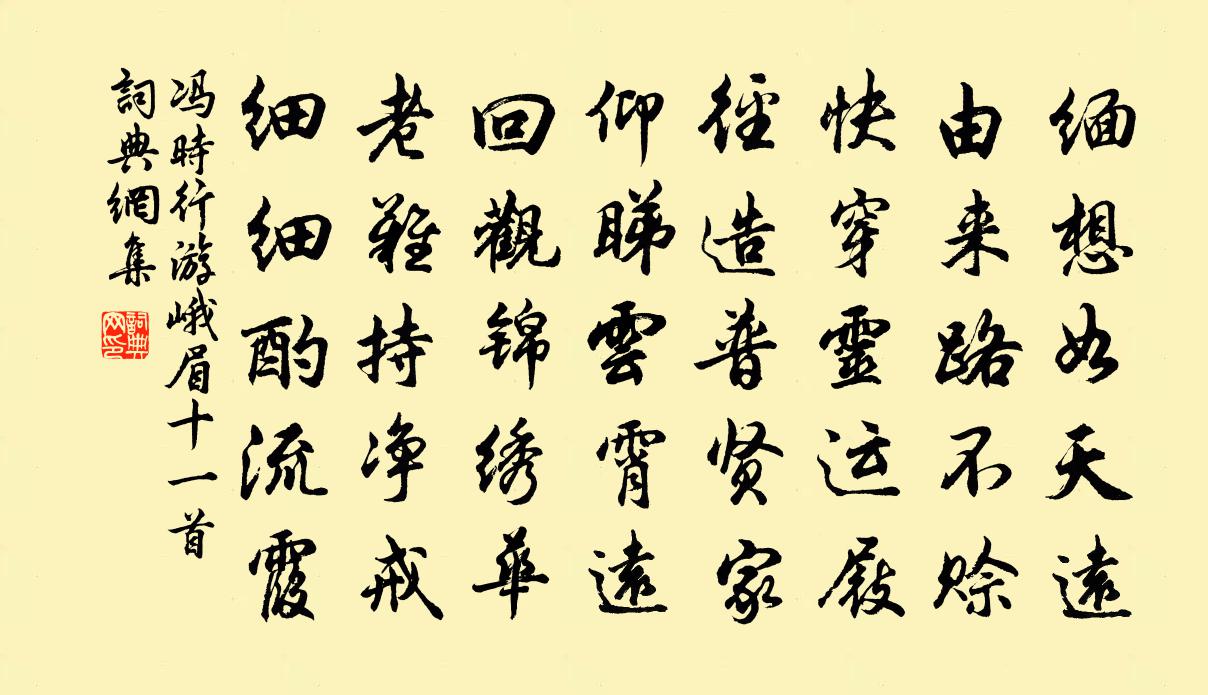 缅想如天遠
由来路不赊
快穿靈运屐
徑造普贤家
仰睇雲霄遠
回觀锦绣華
老難持净戒
细细酌流霞
冯時行游峨眉十一首
詞典網集
詞典网印